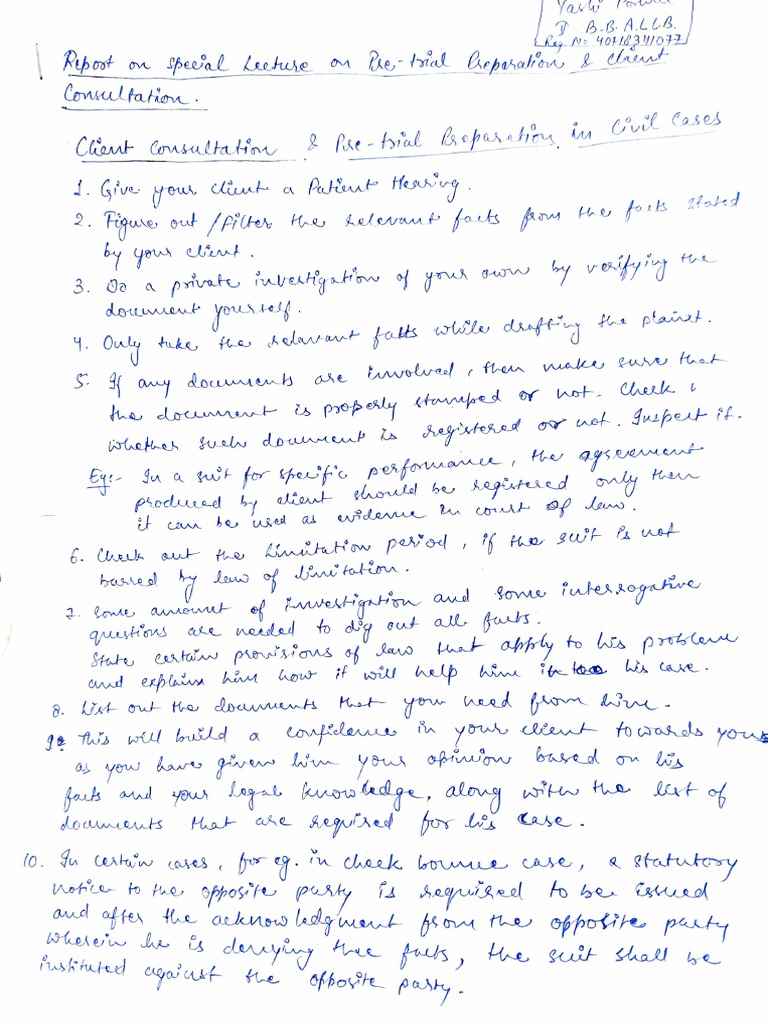 Yashi
B.B.A.LL.B.
Reg. No: 40718341077
Report on special Lecture on Pre-trial Preparation & Client
Consultation.
Client Consultation & Pre-trial Preparation in Civil Cases
1. Give your client a Patient Hearing.
2. Figure out / filter the relevant facts from the facts stated
by your client.
3. Do a private investigation of your own by verifying the
document yourself.
4. Only take the relavant fatts while drafting the plaint.
5. If any documents are involved, then make sure that
the document is properly stamped or not. Check
whether such document is registered or not. Inspect it.
Eg:- In a suit for specific performance, the agreement
produced by client should be registered only then
it can be used as evidence in court of law.
6. Check out the limitation period, if the suit is not
barred by law of limitation.
7. Some amount of investigation and some interrogative
questions are needed to dig out all facts.
State certain provisions of law that apply to his problem
and explain him how it will help him in his case.
8. List out the documents that you need from him.
9. This will build a confidence in your client towards yours
as you have given him your opinion based on his
facts and your legal knowledge, along with the list of
documents that are required for his case.
10. In certain cases, for eg. in check bounce case, a statutory
notice to the opposite party is required to be issued
and after the acknowledgment from the opposite party
wherein he is denying the facts, the suit shall be
instituted against the opposite party.